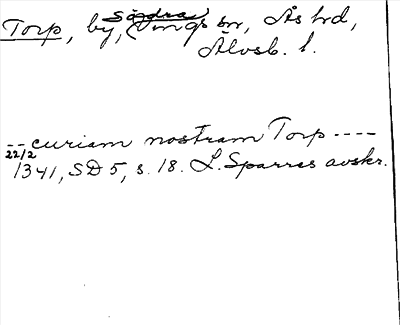 Torp, by, Södra Vings sn, Ås hd,
Älvsb. l.
-- curiam nostram Torp ----
22/2
1341, SD 5, s. 18. L. Sparres avskr.